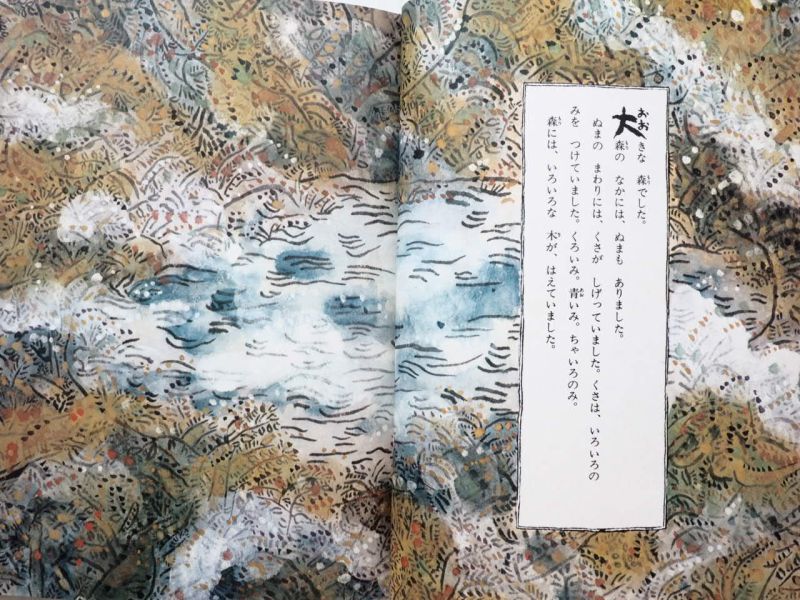 大きな 森でした。
森の なかには、ぬまも ありました。
ぬまの まわりには、くさが しげっていました。くさは、いろいろの
みを つけていました。くろいみ。青いみ。ちゃいろのみ。
森には、いろいろな 木が、はえていました。